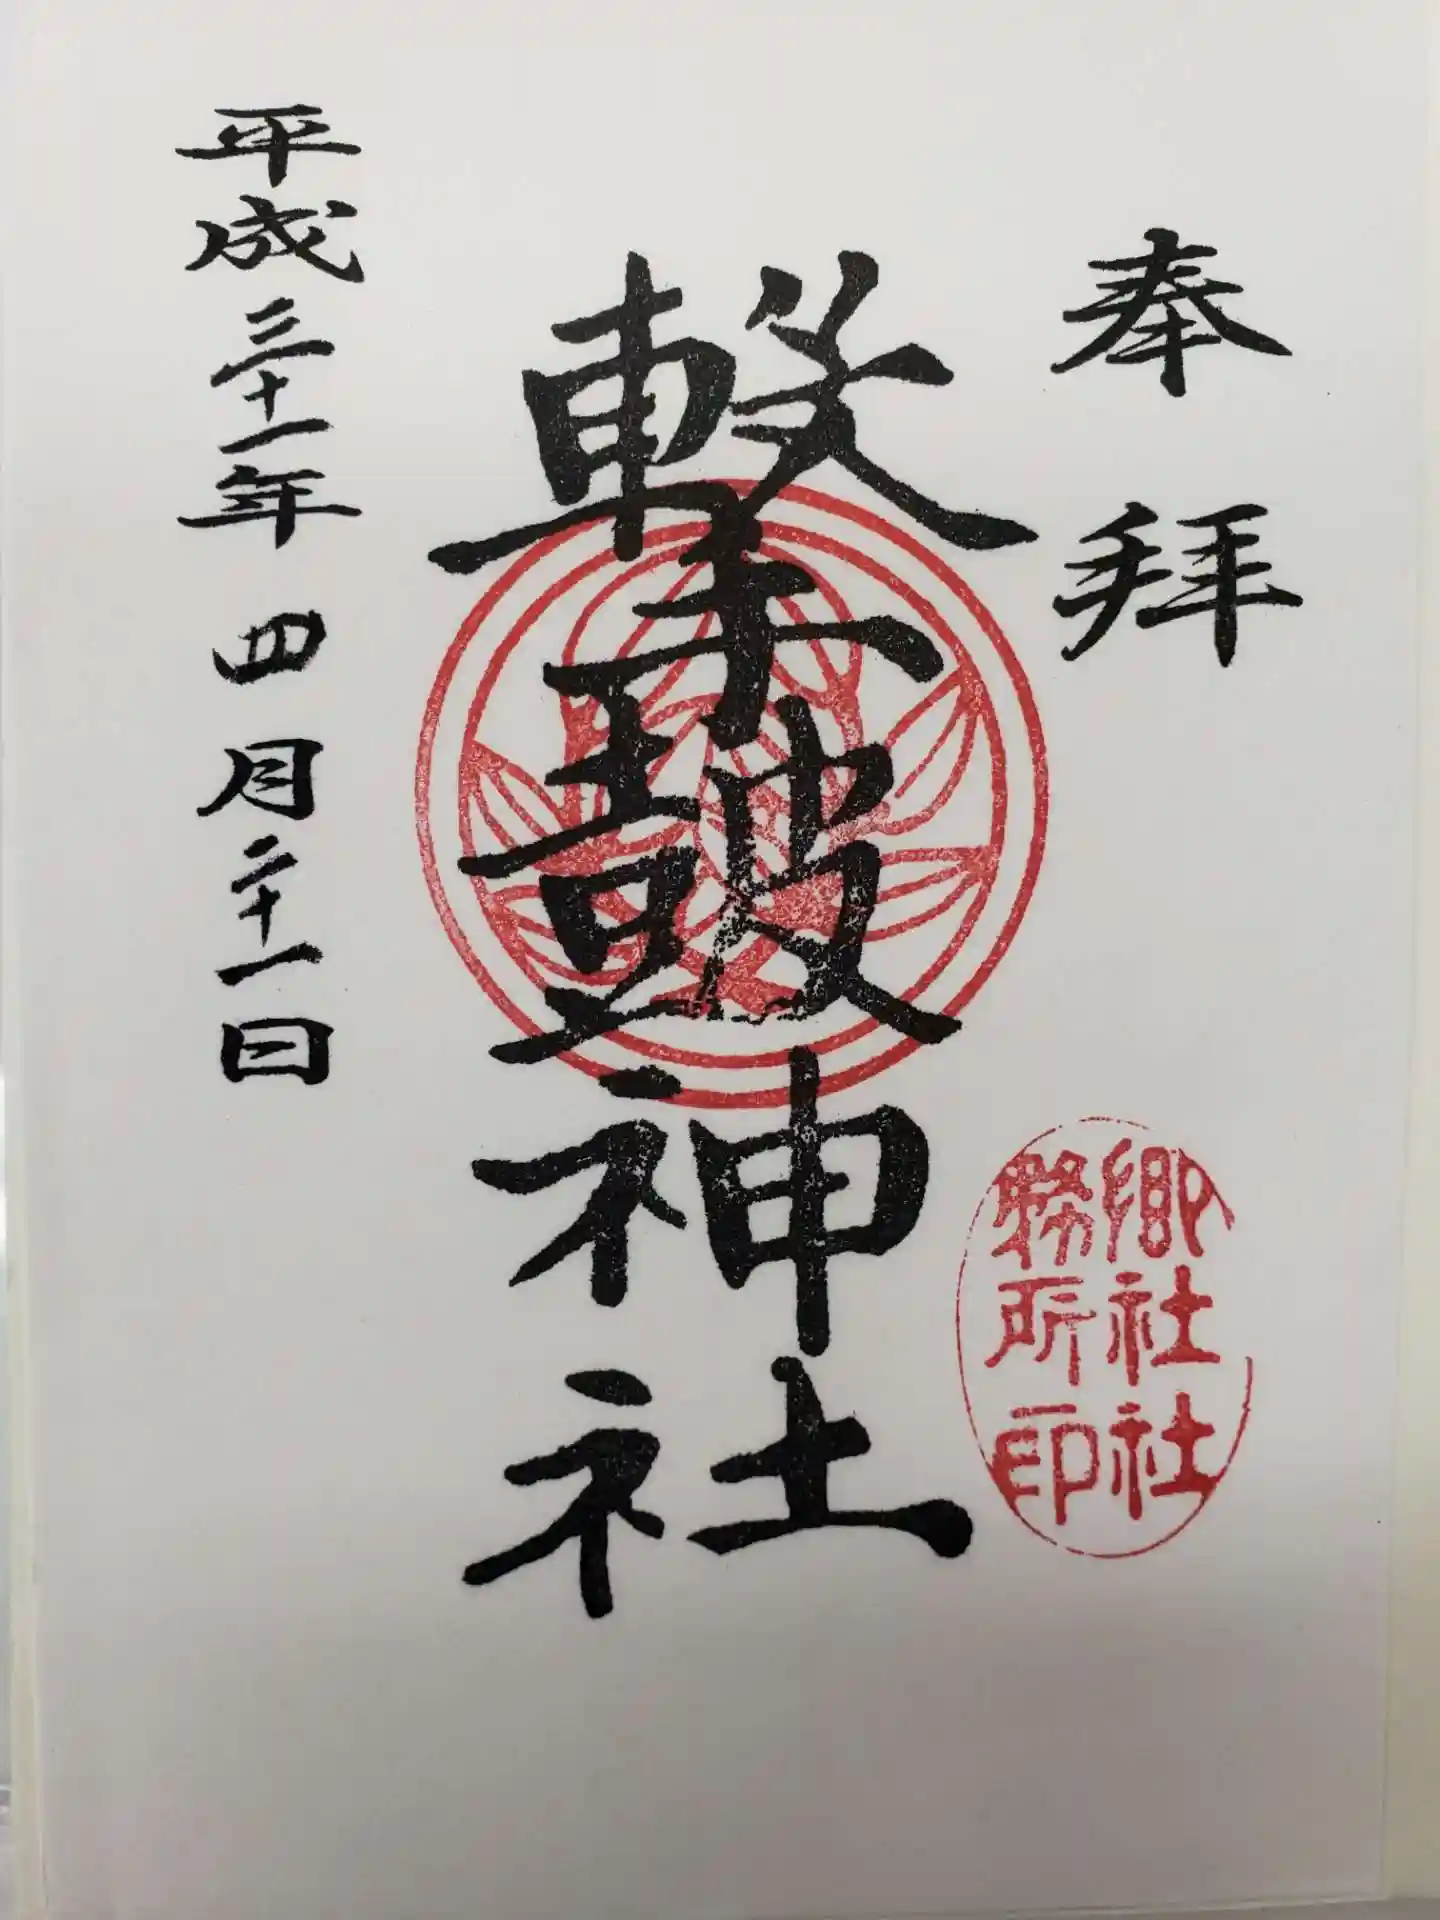 奉拝
撃皷神社
郷社社
務所印
平成三十一年四月二十一日